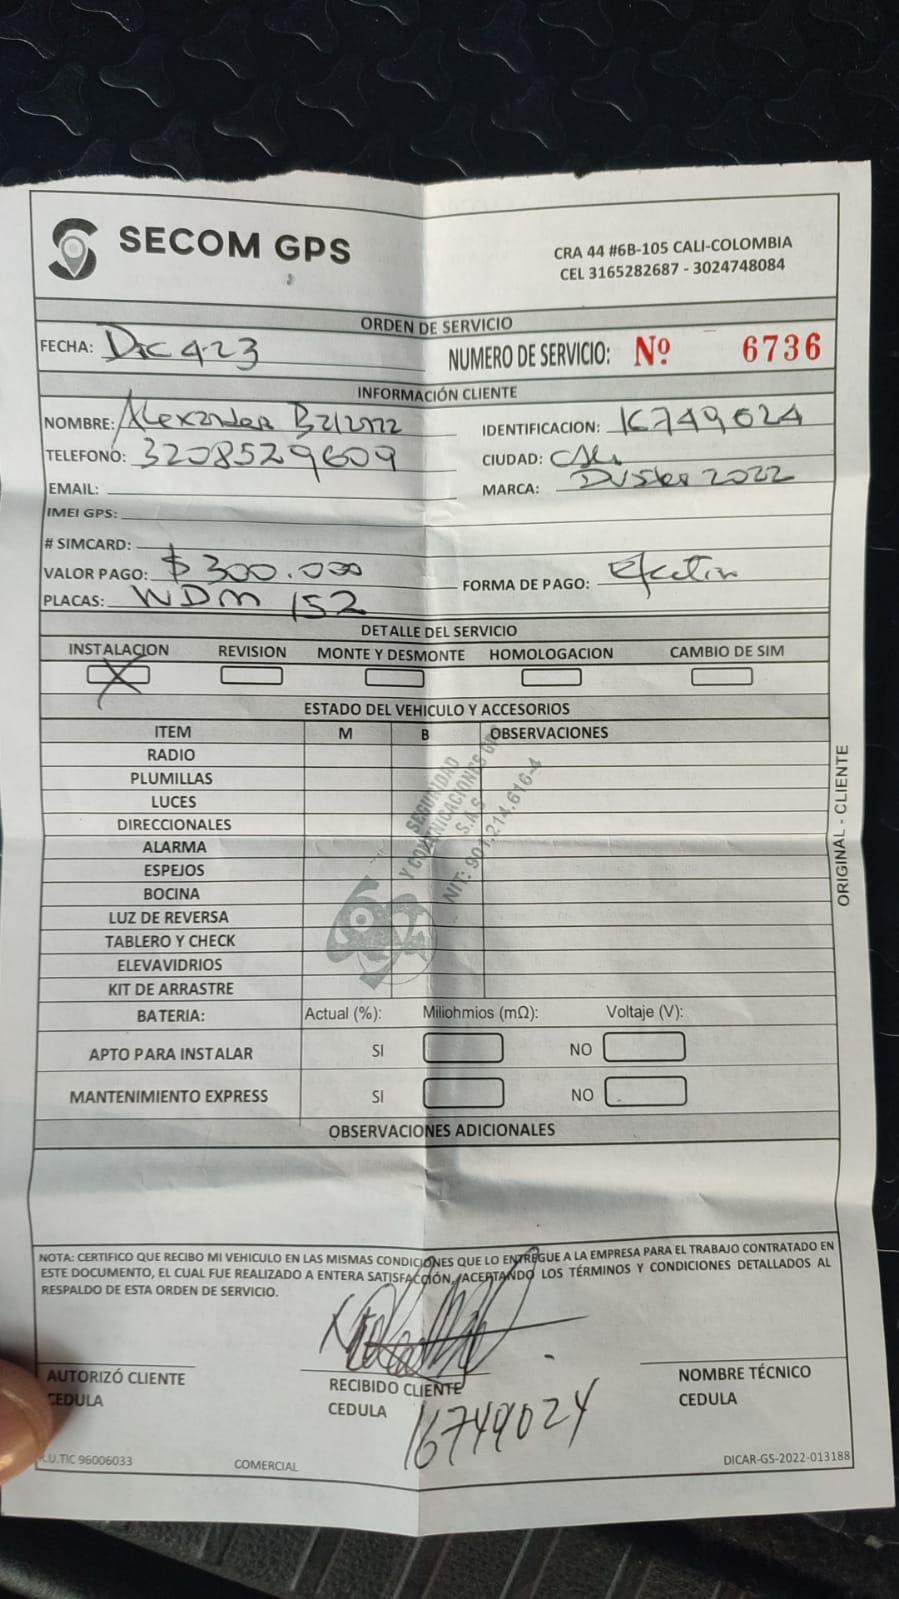 SECOM GPS
CRA 44 #6B-105 CALI-COLOMBIA
CEL 3165282687 - 3024748084
ORDEN DE SERVICIO
FECHA: Dic 4-23
NUMERO DE SERVICIO: Nº 6736
INFORMACIÓN CLIENTE
NOMBRE: Alexander
IDENTIFICACION: 16749024
TELEFONO: 3208529609
CIUDAD: Cali
EMAIL:
MARCA: Duster 2022
IMEI GPS:
# SIMCARD:
VALOR PAGO: $300.000
FORMA DE PAGO:
PLACAS: WDM 152
DETALLE DEL SERVICIO
INSTALACION REVISION MONTE Y DESMONTE HOMOLOGACION CAMBIO DE SIM
ESTADO DEL VEHICULO Y ACCESORIOS
ITEM M B OBSERVACIONES
RADIO
PLUMILLAS
LUCES
DIRECCIONALES
ALARMA
ESPEJOS
BOCINA
LUZ DE REVERSA
TABLERO Y CHECK
ELEVAVIDRIOS
KIT DE ARRASTRE
SEGURIDAD
Y COMUNICACIONES GPS
S.A.S
NIT: 901.214.616-4
ORIGINAL - CLIENTE
BATERIA: Actual (%): Miliohmios (mΩ): Voltaje (V):
APTO PARA INSTALAR SI NO
MANTENIMIENTO EXPRESS SI NO
OBSERVACIONES ADICIONALES
NOTA: CERTIFICO QUE RECIBO MI VEHICULO EN LAS MISMAS CONDICIONES QUE LO ENTREGUE A LA EMPRESA PARA EL TRABAJO CONTRATADO EN
ESTE DOCUMENTO, EL CUAL FUE REALIZADO A ENTERA SATISFACCIÓN, ACEPTANDO LOS TÉRMINOS Y CONDICIONES DETALLADOS AL
RESPALDO DE ESTA ORDEN DE SERVICIO.
AUTORIZÓ CLIENTE
CEDULA
RECIBIDO CLIENTE
CEDULA 16749024
NOMBRE TÉCNICO
CEDULA
TIC 96006033
COMERCIAL
DICAR-GS-2022-013188